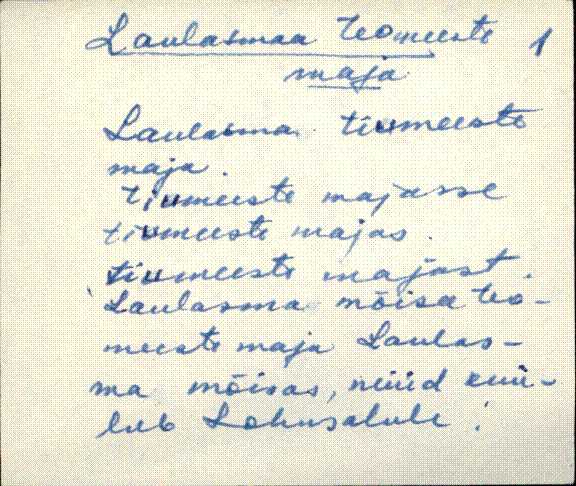 Laulasmaa teomeeste 1
maja
Laulasma tiumeeste
maja.
tiumeeste majasse
tiumeeste majas.
tiumeeste majast.
Laulasma mõisa teo-
meeste maja Laulas-
ma mõisas, nüüd kuu-
lub Lohusalule.